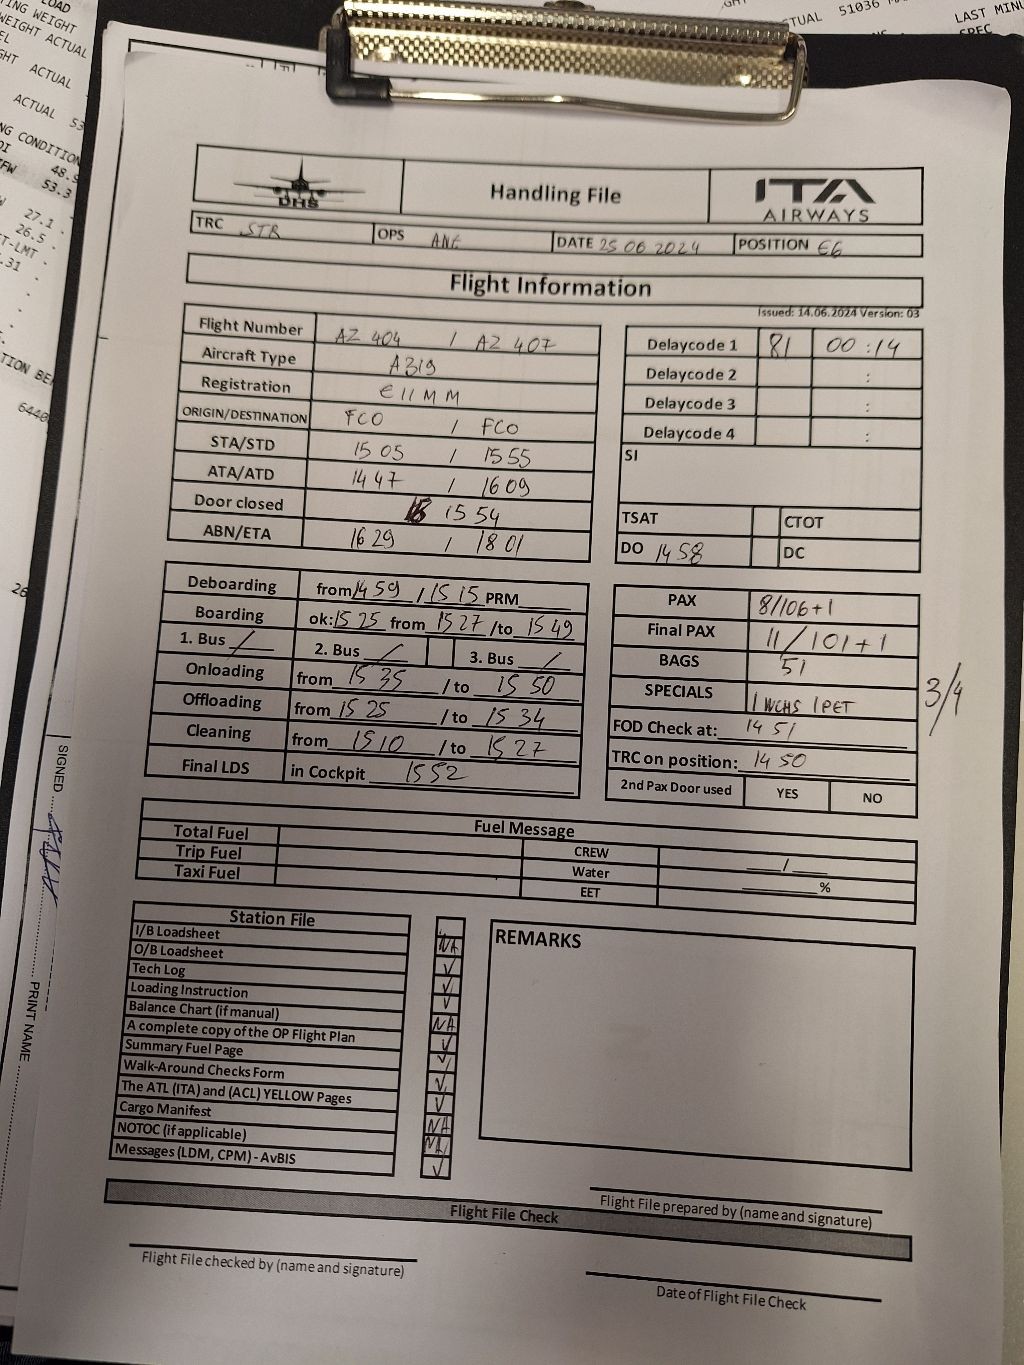 LOAD
WEIGHT
WEIGHT ACTUAL
ACTUAL
ACTUAL 53
CONDITION
48.9
53.3
27.1
26.5
.31
6440
26
TUAL 51036
LAST MINU
SPEC
DHS
Handling File
ITA
AIRWAYS
TRC STR OPS ANE DATE 25 06 2024 POSITION E6
Flight Information
Issued: 14.06.2024 Version: 03
Flight Number AZ 404 / AZ 407
Aircraft Type A319
Registration EIIMM
ORIGIN/DESTINATION FCO / FCO
STA/STD 15 05 / 15 55
ATA/ATD 14 47 / 16 09
Door closed 15 54
ABN/ETA 16 29 / 18 01
Delaycode 1 81 00:14
Delaycode 2 :
Delaycode 3 :
Delaycode 4 :
SI
TSAT CTOT
DO 14 58 DC
Deboarding from 14 59 / 15 15 PRM
Boarding ok: 15 25 from 15 27 /to 15 49
1. Bus / 2. Bus / 3. Bus /
Onloading from 15 35 / to 15 50
Offloading from 15 25 / to 15 34
Cleaning from 15 10 / to 15 27
Final LDS in Cockpit 15 52
PAX 8/106+1
Final PAX 11/101+1
BAGS 51
SPECIALS 1 WCHS 1 PET
3/4
FOD Check at: 14 51
TRC on position: 14 50
2nd Pax Door used YES NO
Fuel Message
Total Fuel CREW /
Trip Fuel Water %
Taxi Fuel EET
Station File
I/B Loadsheet NA
O/B Loadsheet ✓
Tech Log ✓
Loading Instruction ✓
Balance Chart (if manual) NA
A complete copy of the OP Flight Plan ✓
Summary Fuel Page ✓
Walk-Around Checks Form ✓
The ATL (ITA) and (ACL) YELLOW Pages ✓
Cargo Manifest NA
NOTOC (if applicable) NA
Messages (LDM, CPM) - AvBIS ✓
REMARKS
Flight File prepared by (name and signature)
Flight File Check
Flight File checked by (name and signature)
Date of Flight File Check
SIGNED
PRINT NAME